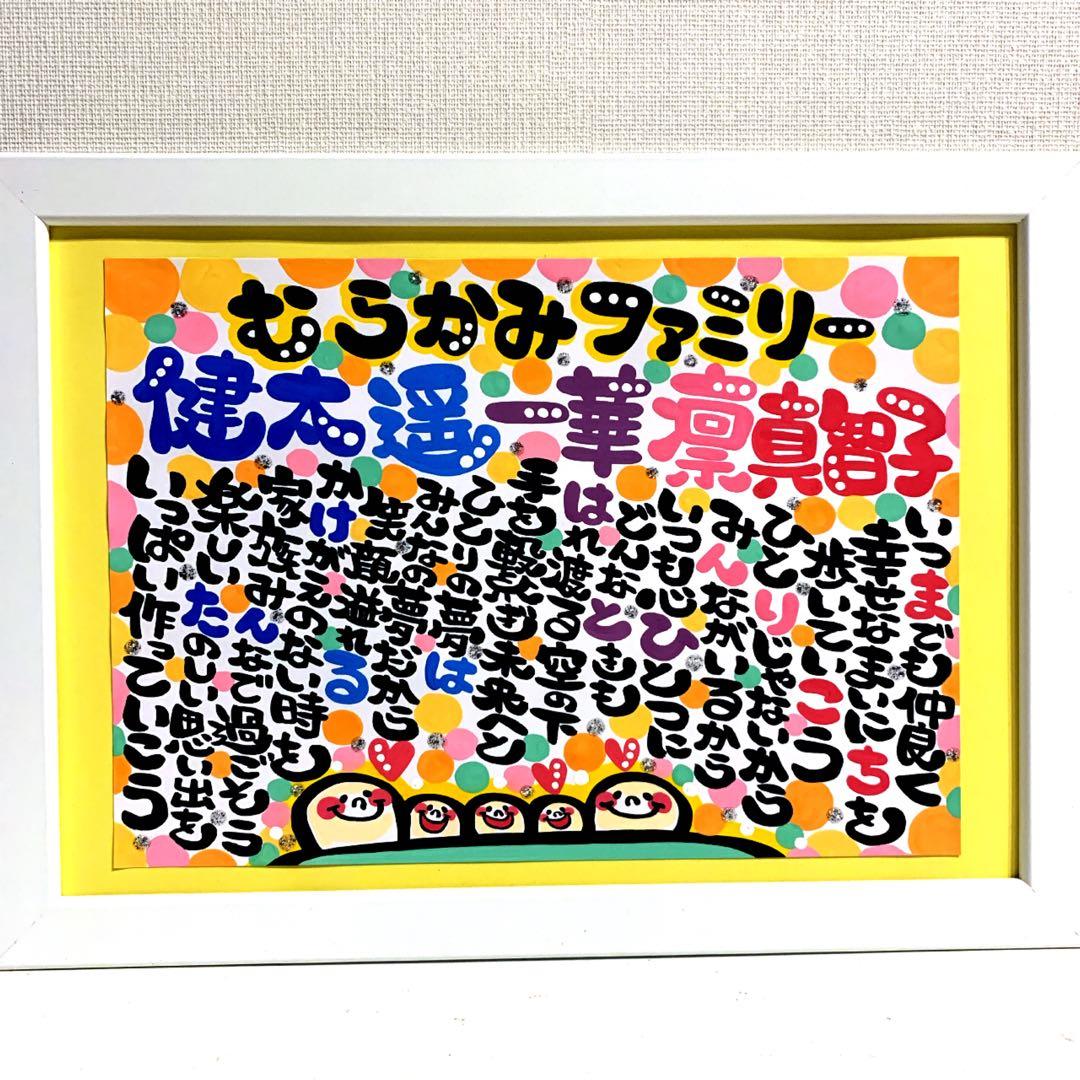 むらかみファミリー
健太 遥 一華 凛 真智子
いつまでも仲良く
幸せなまいにちを
歩いていこう
ひとりじゃないから
みんながいるから
いつも心ひとつに
どんなときも
はれ渡る空の下
手を繋ぎ未来へと
ひとりの夢は
みんなの夢だから
笑顔溢れる
かけがえのない時を
家族みんなで過ごそう
楽しいたのしい思い出を
いっぱい作っていこう